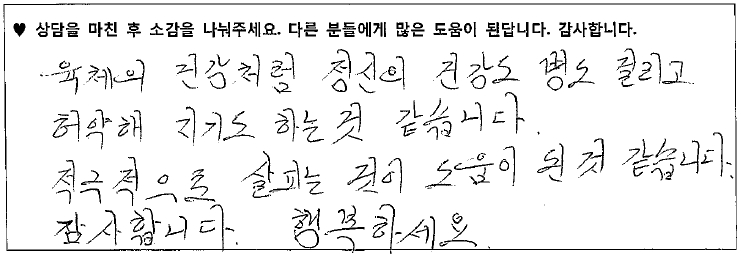 ♥ 상담을 마친 후 소감을 나눠주세요. 다른 분들에게 많은 도움이 된답니다. 감사합니다.
육체의 건강처럼 정신의 건강도 병도 걸리고
허약해 지기도 하는것 같습니다.
적극적으로 살피는 것이 도움이 된 것 같습니다.
감사합니다. 행복하세요.